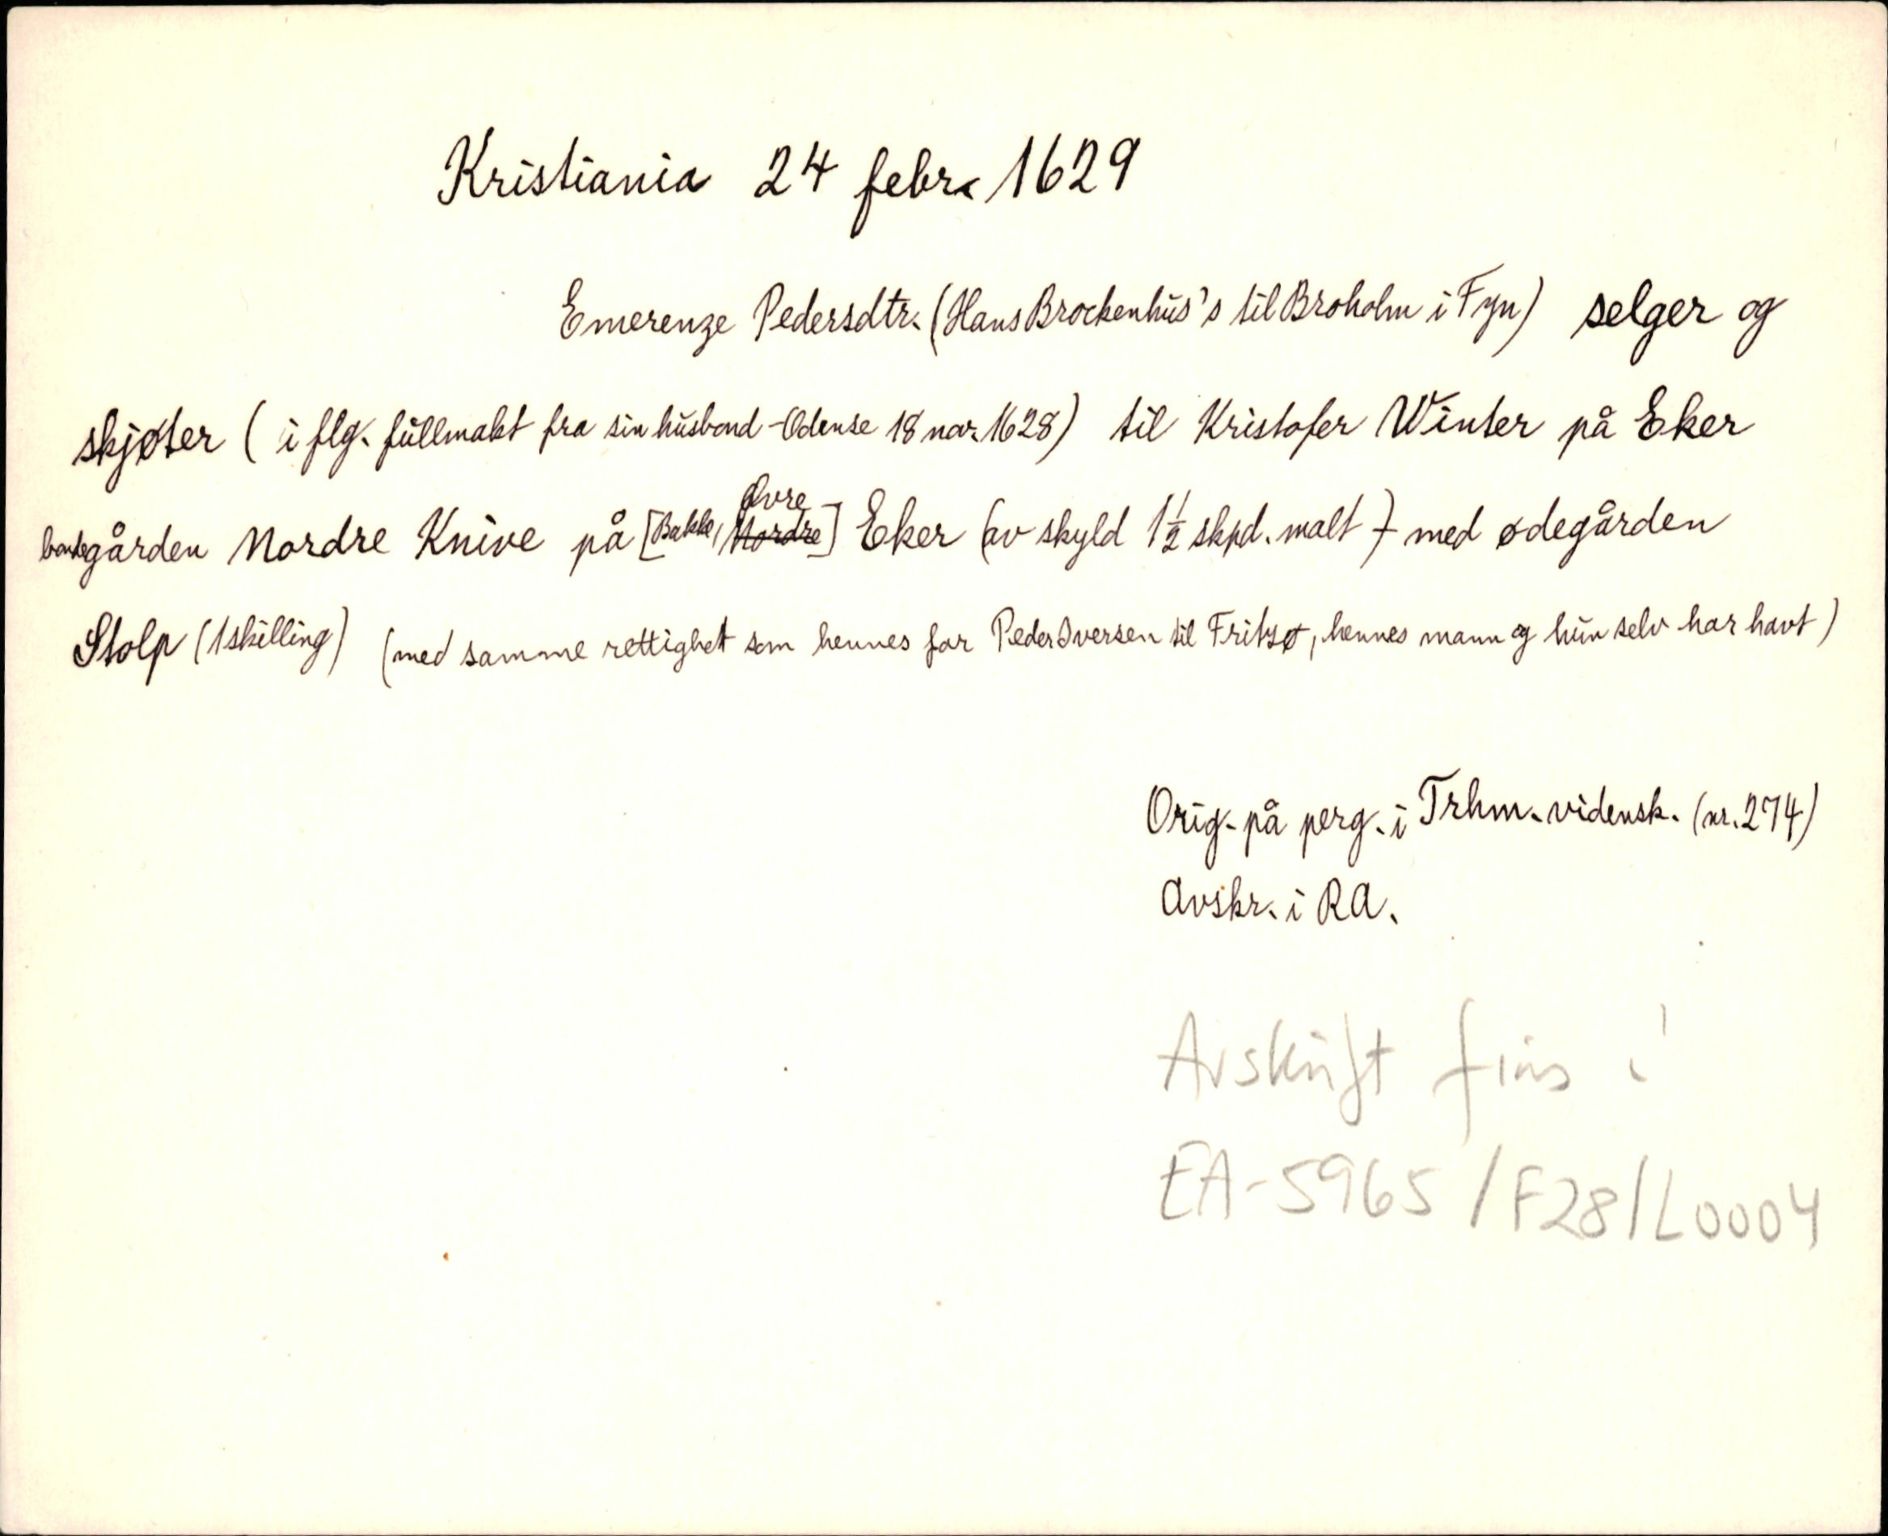 Kristiania 24 febr. 1629
Emerenze Pedersdtr. (Hans Brockenhus's til Broholm i Fyn) selger og
skjøter (i flg. fullmakt fra sin husbond - Odense 18 nov. 1628) til Kristofer Winter på Eker
bondegården Nordre Knive på [Bakke, Øvre Nordre] Eker (av skyld 1½ skpd. malt) med ødegården
Stolp (1 skilling) (med samme rettighet som hennes far Peder Iversen til Fritsø, hennes mann og hun selv har havt)
Orig. på perg. i Trhm. vidensk. (nr. 274)
Avskr. i RA.
Avskrift fins i
EA-5965/F28/L0004